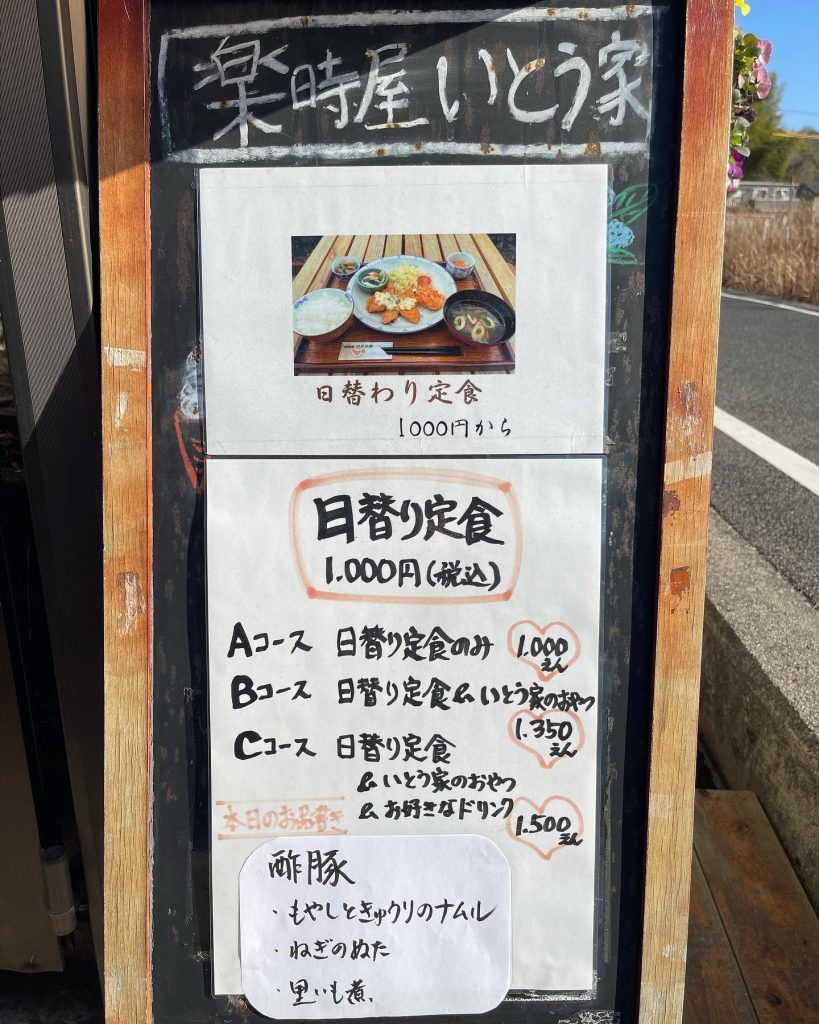 楽時屋いとう家
日替わり定食
1000円から
日替り定食
1.000円(税込)
Aコース 日替り定食のみ 1.000えん
Bコース 日替り定食&いとう家のおやつ
1.350えん
Cコース 日替り定食
&いとう家のおやつ
&お好きなドリンク 1.500えん
本日のお品書き
酢豚
・もやしときゅうりのナムル
・ねぎのぬた
・里いも煮、